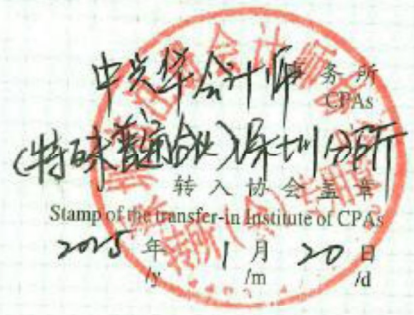 中兴华会计师事务所
CPAs
(特殊普通合伙)深圳分所
转入协会盖章
Stamp of the transfer-in Institute of CPAs
2025年1月20日
/y /m /d